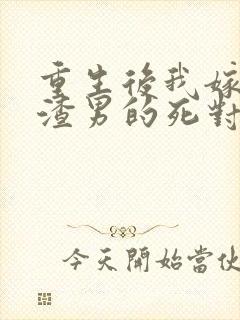 重生後我嫁
渣男的死對
今天開始當伙